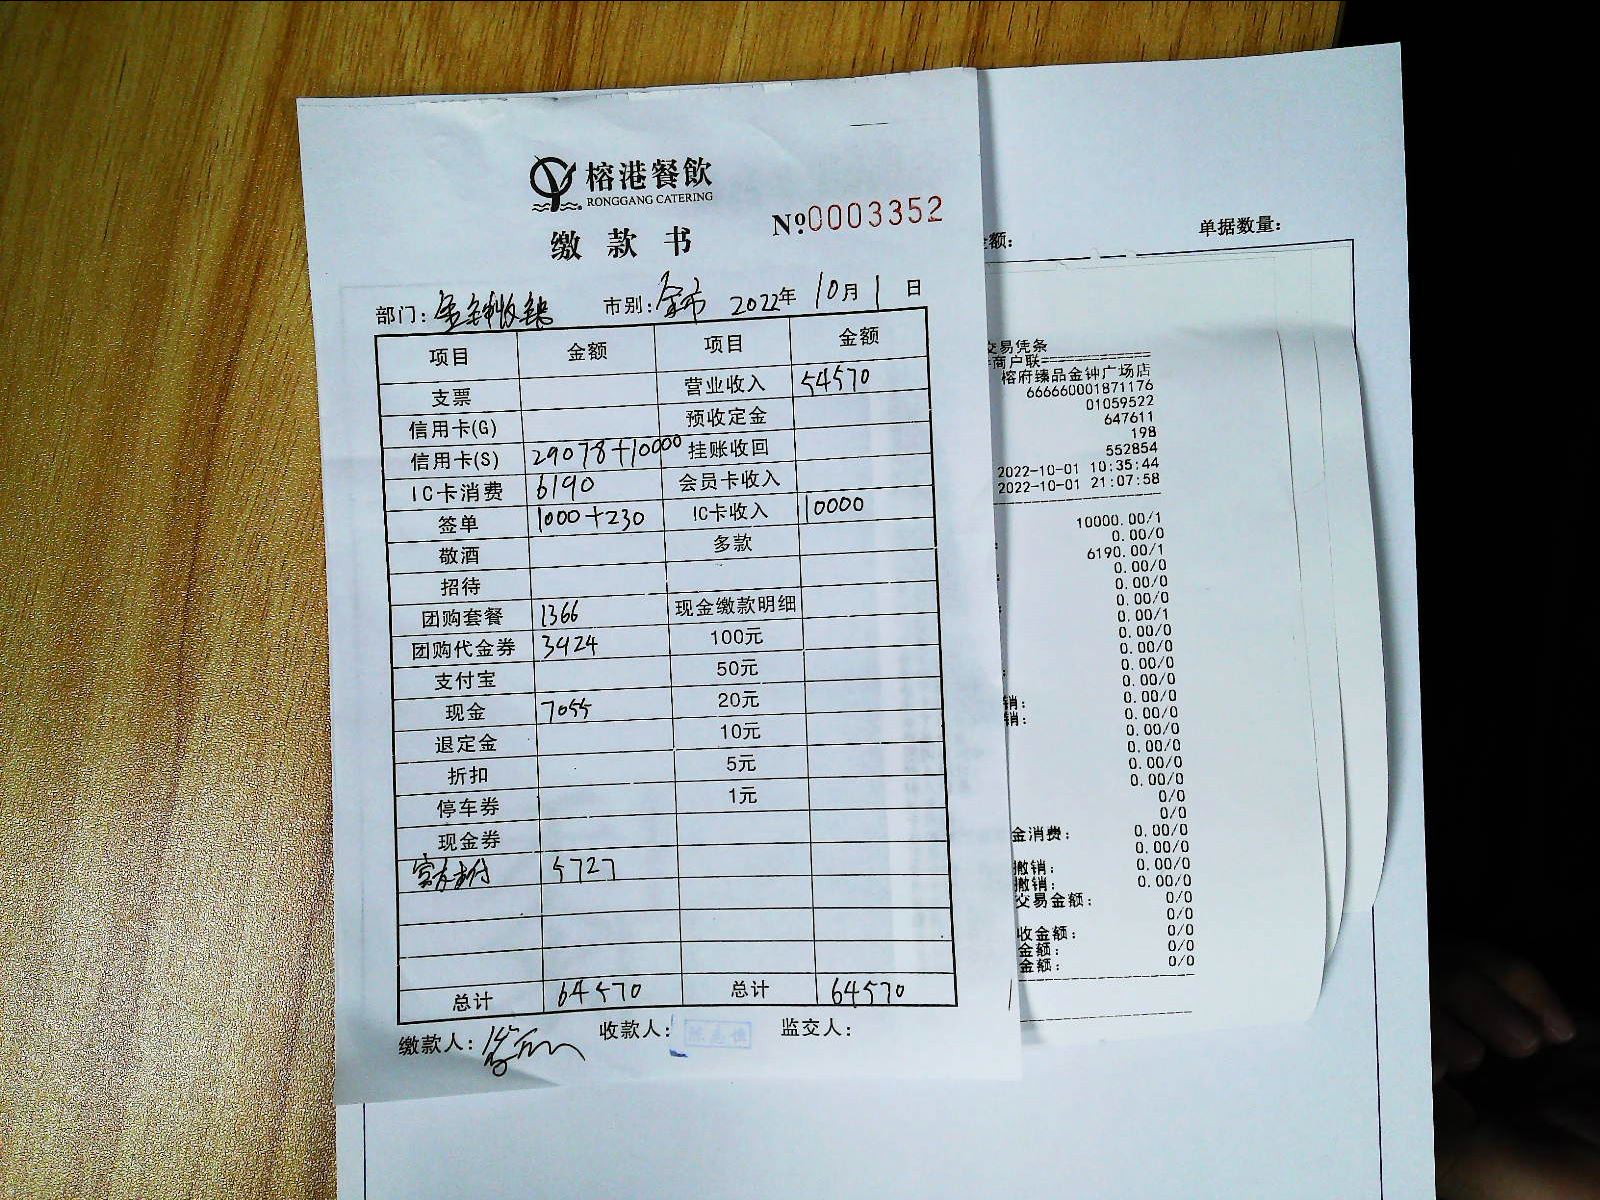 榕港餐飲
RONGGANG CATERING
缴款书
№0003352
部门：金钟收银 市别：全市 2022年10月1日
项目 金额 项目 金额
支票 营业收入 54570
信用卡(G) 预收定金
信用卡(S) 29078+10000 挂账收回
IC卡消费 6190 会员卡收入
签单 1000+230 IC卡收入 10000
敬酒 多款
招待
团购套餐 1366 现金缴款明细
团购代金券 3424 100元
支付宝 50元
现金 7055 20元
退定金 10元
折扣 5元
停车券 1元
现金券
5727
总计 64570 总计 64570
缴款人： 收款人： 监交人：
额： 单据数量：
交易凭条
商户联==============
榕府臻品金钟广场店
666660001871176
01059522
647611
198
552854
2022-10-01 10:35:44
2022-10-01 21:07:58
10000.00/1
0.00/0
6190.00/1
0.00/0
0.00/0
0.00/0
0.00/1
0.00/0
0.00/0
0.00/0
0.00/0
销： 0.00/0
销： 0.00/0
0.00/0
0.00/0
0.00/0
0.00/0
0/0
0/0
金消费： 0.00/0
0.00/0
撤销： 0.00/0
撤销： 0.00/0
交易金额： 0/0
0/0
收金额： 0/0
金额： 0/0
金额： 0/0